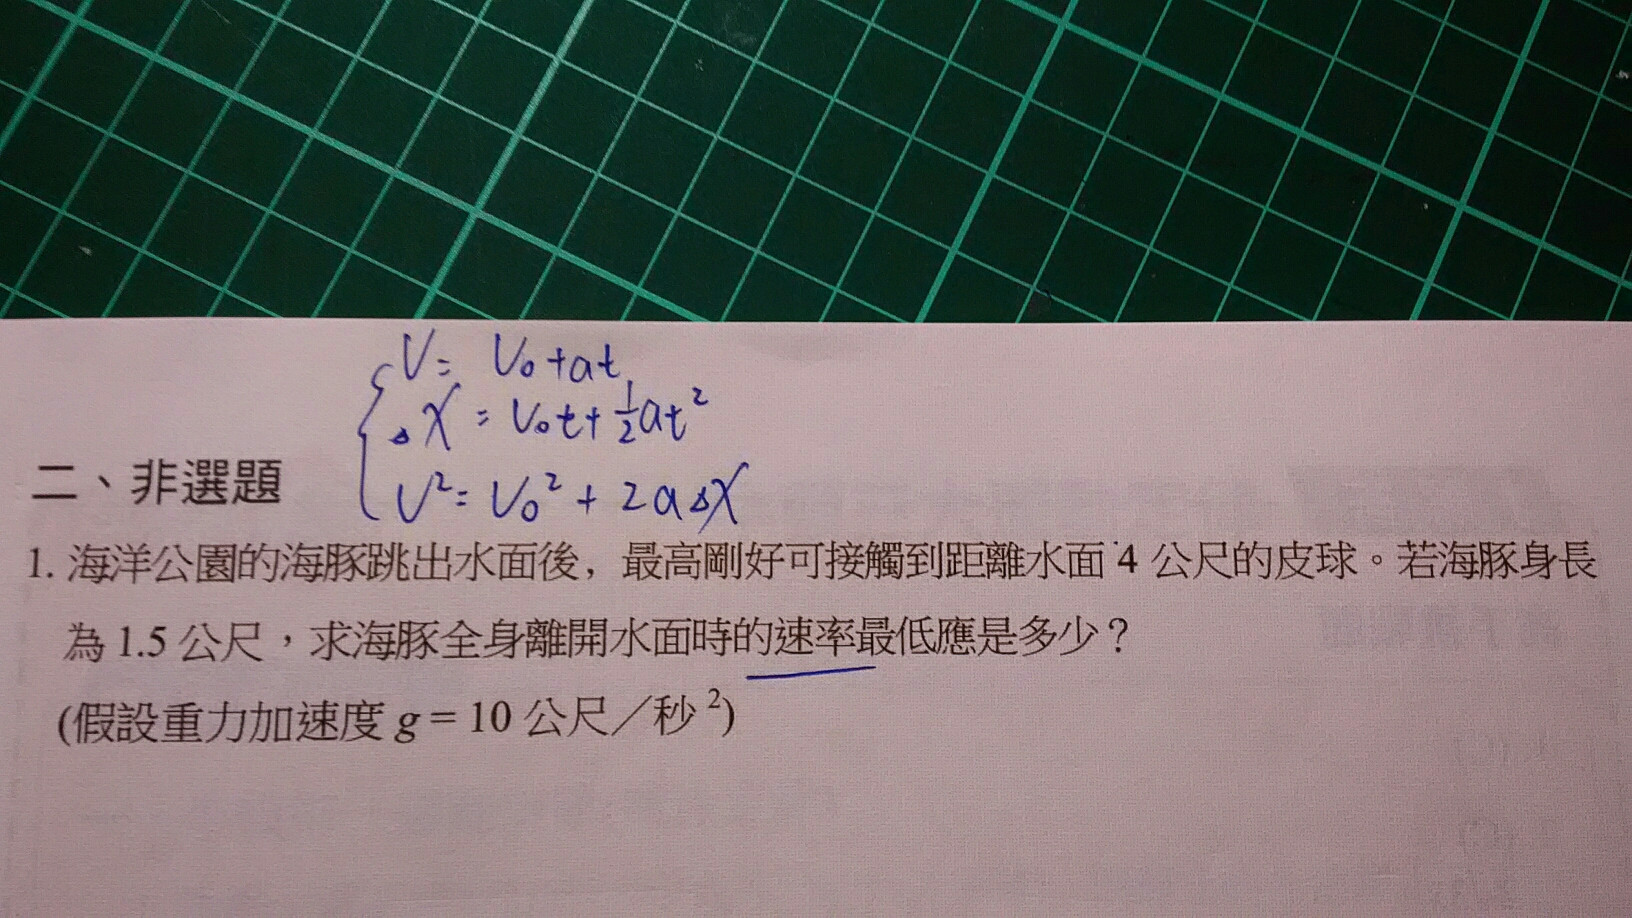 V = V₀ + at
△X = V₀t + ½at²
V² = V₀² + 2a△X
二、非選題
1. 海洋公園的海豚跳出水面後，最高剛好可接觸到距離水面 4 公尺的皮球。若海豚身長
為 1.5 公尺，求海豚全身離開水面時的速率最低應是多少？
(假設重力加速度 g = 10 公尺／秒²)